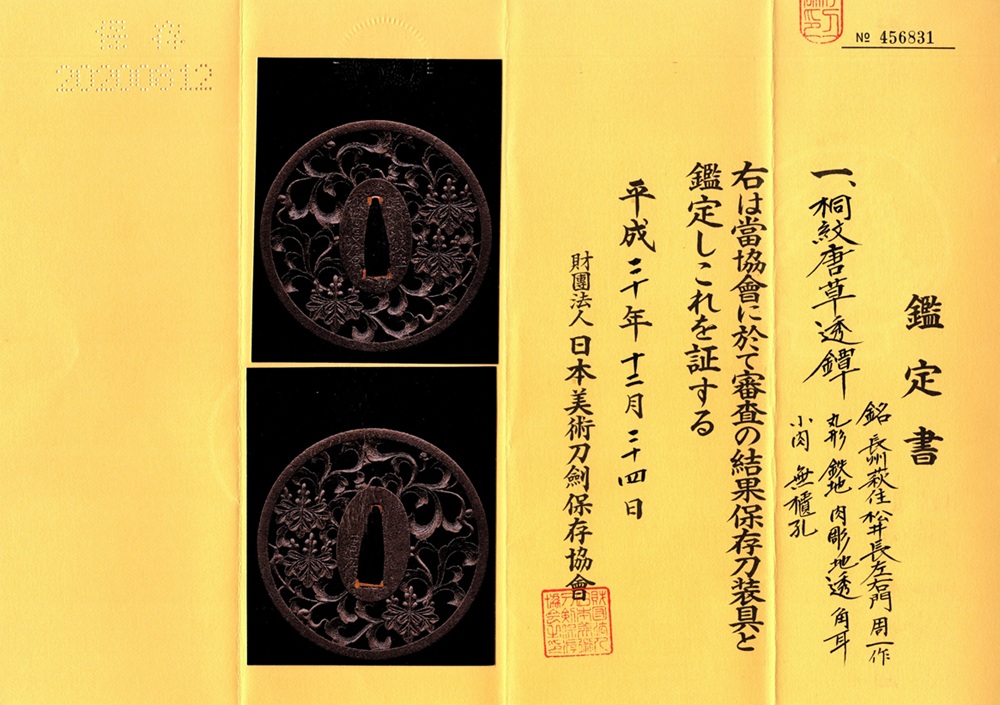 № 456831
鑑定書
一、桐紋唐草透鐔
銘 長州萩住松井長左右門周一作
丸形 鉄地 肉彫地透 角耳
小肉 無櫃孔
右は當協會に於て審査の結果保存刀装具と
鑑定しこれを証する
平成二十年十二月二十四日
財團法人日本美術刀劍保存協會
保存
20200812